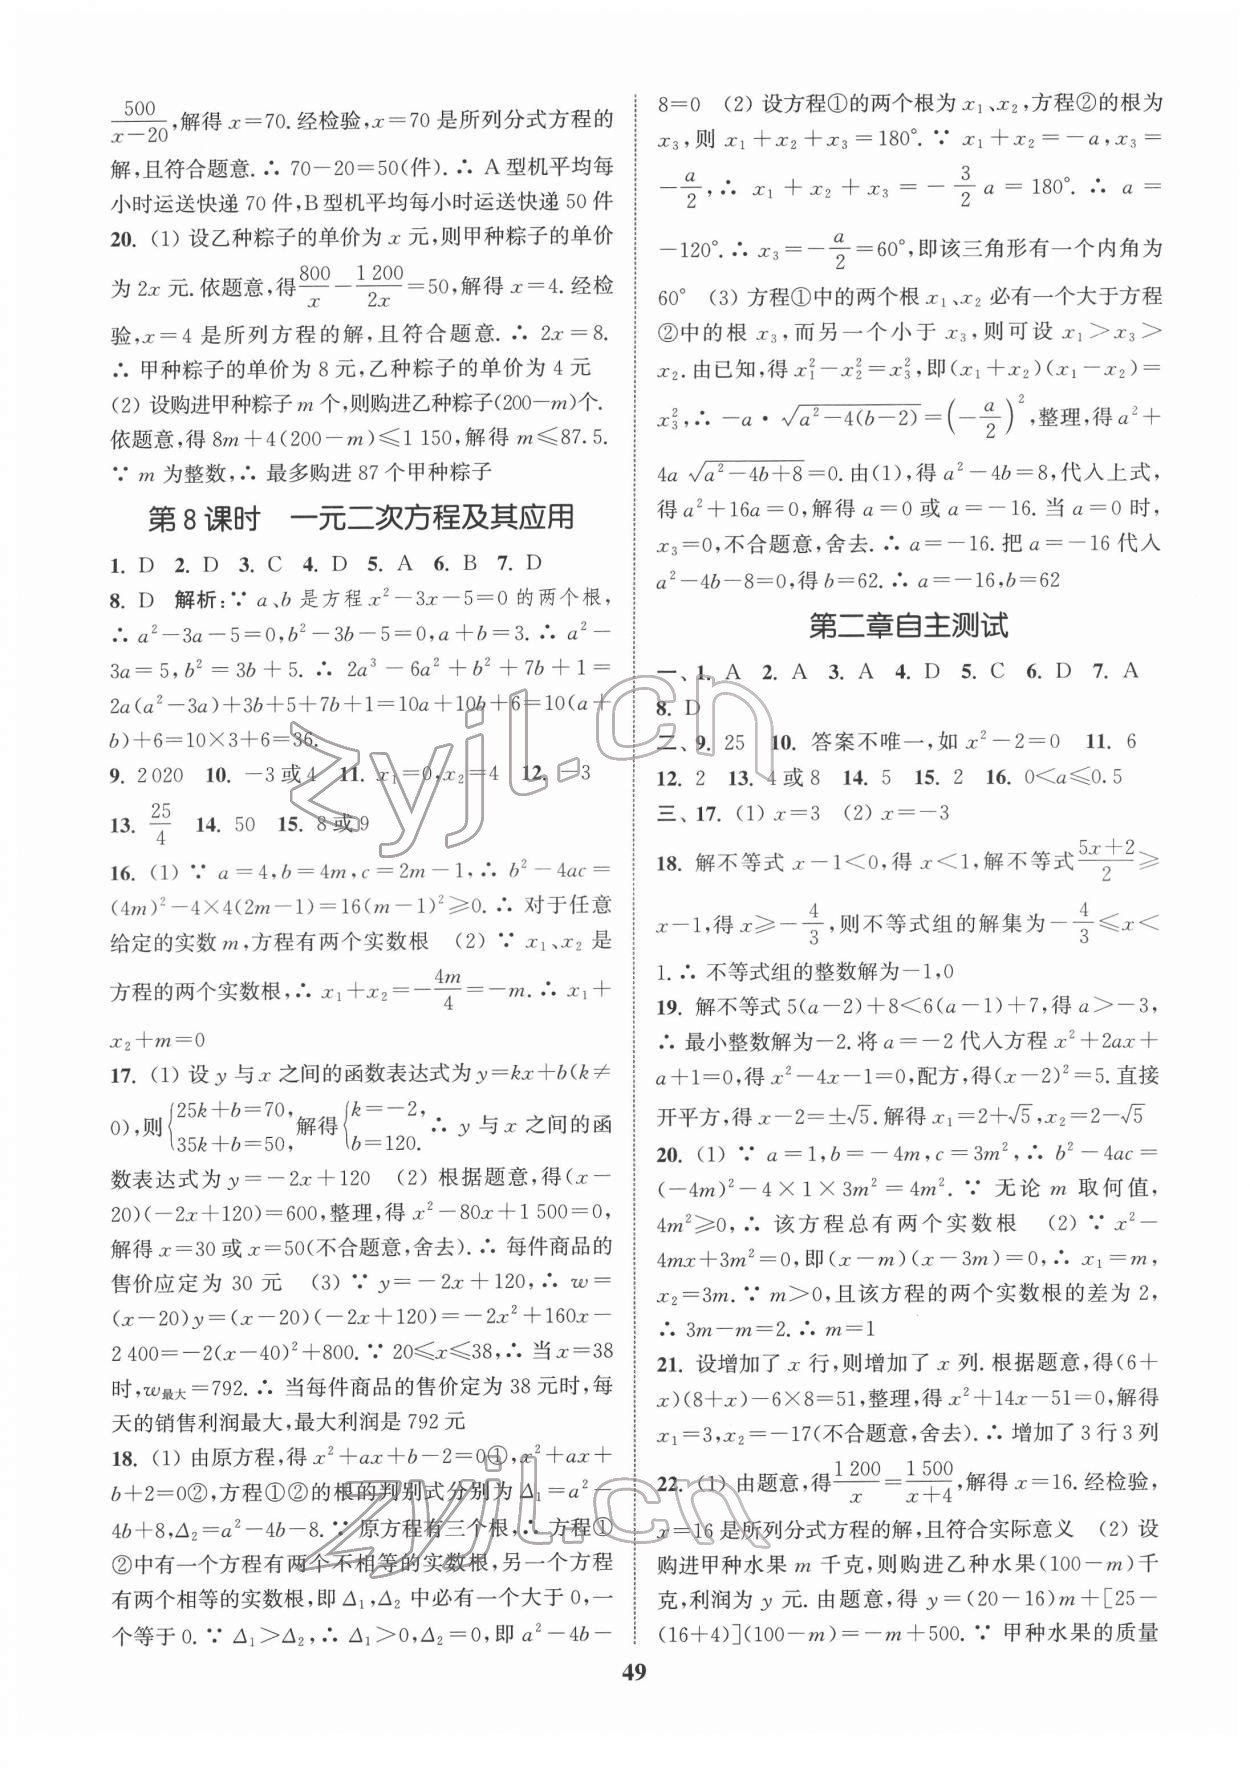 500/(x-20),解得 x=70.经检验,x=70 是所列分式方程的
解,且符合题意.∴ 70-20=50(件).∴ A 型机平均每
小时运送快递 70 件,B 型机平均每小时运送快递 50 件
20. (1) 设乙种粽子的单价为 x 元,则甲种粽子的单价
为 2x 元.依题意,得 800/x - 1 200/2x =50,解得 x=4.经检
验,x=4 是所列方程的解,且符合题意.∴ 2x=8.
∴ 甲种粽子的单价为 8 元,乙种粽子的单价为 4 元
(2) 设购进甲种粽子 m 个,则购进乙种粽子(200-m)个.
依题意,得 8m+4(200-m)≤1 150,解得 m≤87.5.
∵ m 为整数,∴ 最多购进 87 个甲种粽子
第 8 课时 一元二次方程及其应用
1. D 2. D 3. C 4. D 5. A 6. B 7. D
8. D 解析:∵ a、b 是方程 x²-3x-5=0 的两个根,
∴ a²-3a-5=0,b²-3b-5=0,a+b=3.∴ a²-
3a=5,b²=3b+5.∴ 2a³-6a²+b²+7b+1=
2a(a²-3a)+3b+5+7b+1=10a+10b+6=10(a+
b)+6=10×3+6=36.
9. 2 020 10. -3 或 4 11. x₁=0,x₂=4 12. -3
13. 25/4 14. 50 15. 8 或 9
16. (1) ∵ a=4,b=4m,c=2m-1,∴ b²-4ac=
(4m)²-4×4(2m-1)=16(m-1)²≥0.∴ 对于任意
给定的实数 m,方程有两个实数根 (2) ∵ x₁、x₂ 是
方程的两个实数根,∴ x₁+x₂=-4m/4=-m.∴ x₁+
x₂+m=0
17. (1) 设 y 与 x 之间的函数表达式为 y=kx+b(k≠
0),则{25k+b=70, 35k+b=50,解得{k=-2, b=120.∴ y 与 x 之间的函
数表达式为 y=-2x+120 (2) 根据题意,得(x-
20)(-2x+120)=600,整理,得 x²-80x+1 500=0,
解得 x=30 或 x=50(不合题意,舍去).∴ 每件商品的
售价应定为 30 元 (3) ∵ y=-2x+120,∴ w=
(x-20)y=(x-20)(-2x+120)=-2x²+160x-
2 400=-2(x-40)²+800.∵ 20≤x≤38,∴ 当 x=38
时,w最大=792.∴ 当每件商品的售价定为 38 元时,每
天的销售利润最大,最大利润是 792 元
18. (1) 由原方程,得 x²+ax+b-2=0①,x²+ax+
b+2=0②,方程①②的根的判别式分别为 Δ₁=a²-
4b+8,Δ₂=a²-4b-8.∵ 原方程有三个根,∴ 方程①
②中有一个方程有两个不相等的实数根,另一个方程
有两个相等的实数根,即 Δ₁,Δ₂ 中必有一个大于 0,一
个等于 0.∵ Δ₁>Δ₂,∴ Δ₁>0,Δ₂=0,即 a²-4b-
8=0 (2) 设方程①的两个根为 x₁、x₂,方程②的根为
x₃,则 x₁+x₂+x₃=180°.∵ x₁+x₂=-a,x₃=
-a/2,∴ x₁+x₂+x₃=-3/2 a=180°.∴ a=
-120°.∴ x₃=-a/2=60°,即该三角形有一个内角为
60° (3) 方程①中的两个根 x₁、x₂ 必有一个大于方程
②中的根 x₃,而另一个小于 x₃,则可设 x₁>x₃>
x₂.由已知,得 x₁²-x₂²=x₃²,即(x₁+x₂)(x₁-x₂)=
x₃²,∴ -a·√(a²-4(b-2))=(-a/2)²,整理,得 a²+
4a √(a²-4b+8)=0.由(1),得 a²-4b=8,代入上式,
得 a²+16a=0,解得 a=0 或 a=-16.当 a=0 时,
x₃=0,不合题意,舍去.∴ a=-16.把 a=-16 代入
a²-4b-8=0,得 b=62.∴ a=-16,b=62
第二章自主测试
一、1. A 2. A 3. A 4. D 5. C 6. D 7. A
8. D
二、9. 25 10. 答案不唯一,如 x²-2=0 11. 6
12. 2 13. 4 或 8 14. 5 15. 2 16. 0<a≤0.5
三、17. (1) x=3 (2) x=-3
18. 解不等式 x-1<0,得 x<1,解不等式 (5x+2)/2≥
x-1,得 x≥-4/3,则不等式组的解集为-4/3≤x<
1.∴ 不等式组的整数解为-1,0
19. 解不等式 5(a-2)+8<6(a-1)+7,得 a>-3,
∴ 最小整数解为-2.将 a=-2 代入方程 x²+2ax+
a+1=0,得 x²-4x-1=0,配方,得(x-2)²=5.直接
开平方,得 x-2=±√5.解得 x₁=2+√5,x₂=2-√5
20. (1) ∵ a=1,b=-4m,c=3m²,∴ b²-4ac=
(-4m)²-4×1×3m²=4m².∵ 无论 m 取何值,
4m²≥0,∴ 该方程总有两个实数根 (2) ∵ x²-
4mx+3m²=0,即(x-m)(x-3m)=0,∴ x₁=m,
x₂=3m.∵ m>0,且该方程的两个实数根的差为 2,
∴ 3m-m=2.∴ m=1
21. 设增加了 x 行,则增加了 x 列.根据题意,得(6+
x)(8+x)-6×8=51,整理,得 x²+14x-51=0,解得
x₁=3,x₂=-17(不合题意,舍去).∴ 增加了 3 行 3 列
22. (1) 由题意,得 1 200/x = 1 500/(x+4),解得 x=16.经检验,
x=16 是所列分式方程的解,且符合实际意义 (2) 设
购进甲种水果 m 千克,则购进乙种水果(100-m)千
克,利润为 y 元.由题意,得 y=(20-16)m+[25-
(16+4)](100-m)=-m+500.∵ 甲种水果的质量
49
zyjl.cn
zyjl.cn